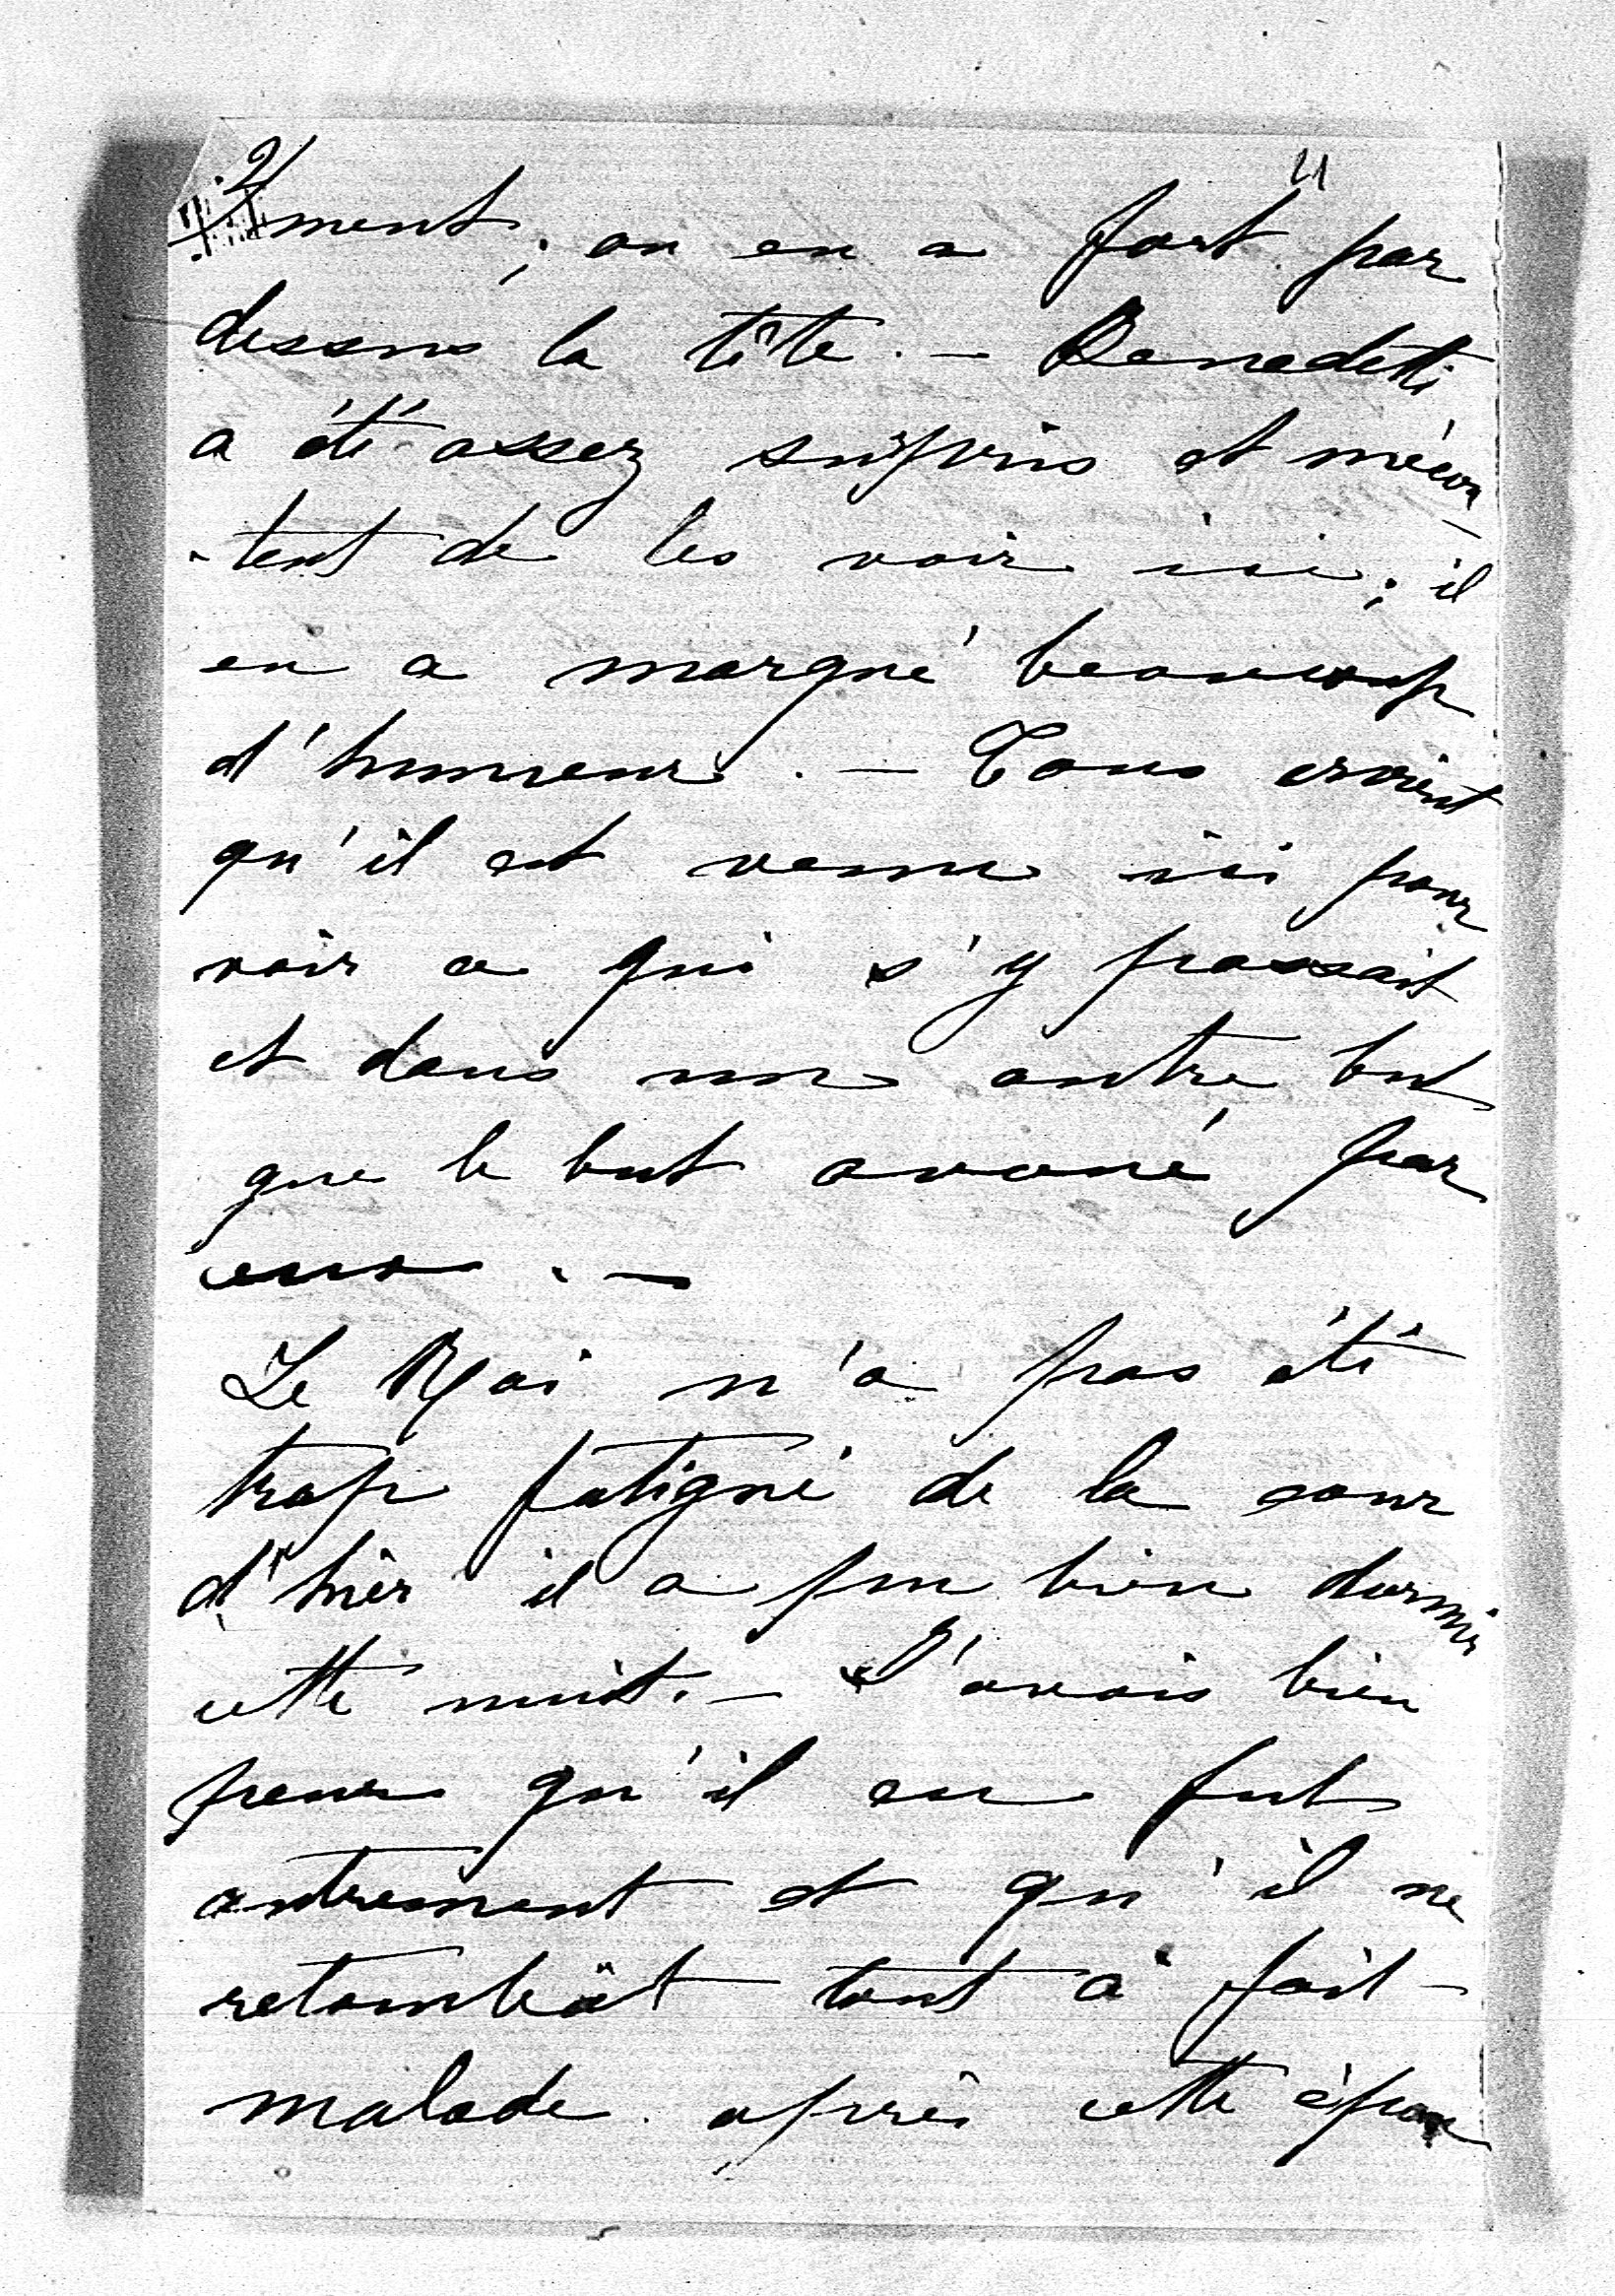 2/ 21
ment; on en a fort par
dessus la tête. — Benedetti
a été assez surpris et mécon
-tent de les voir ici; il
en a marqué beaucoup
d'humeur. — Tous croient
qu'il est venu ici pour
voir ce qui s'y passait
et dans un autre but
que le but avoué par
eux. —
Le Roi n'a pas été
trop fatigué de la cour
d'hier il a pu bien dormir
cette nuit. — J'avais bien
peur qu'il en fut
autrement et qu'il ne
retombât tout à fait
malade après cette épreu